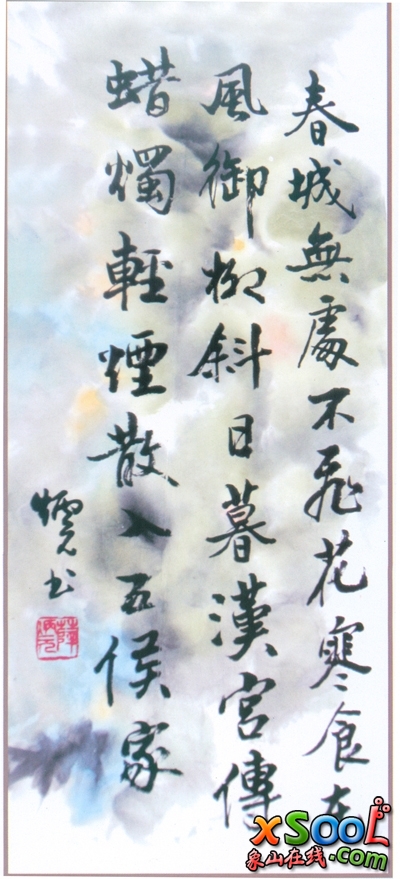 春城無處不飛花寒食东
風御柳斜日暮漢宮傳
蜡燭輕煙散入五侯家
炳元书
xsool
象山在线.com